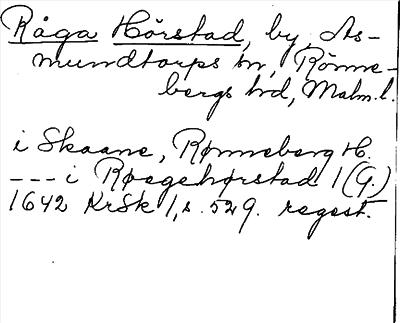 Råga Hörstad, by, As-
mundtorps sn, Rönne-
bergs hd, Malm. l.
i Skaane, Rønneberg H.
--- i Røegehørstad 1 (G.)
1642 KrSk 1, s. 529. regest.